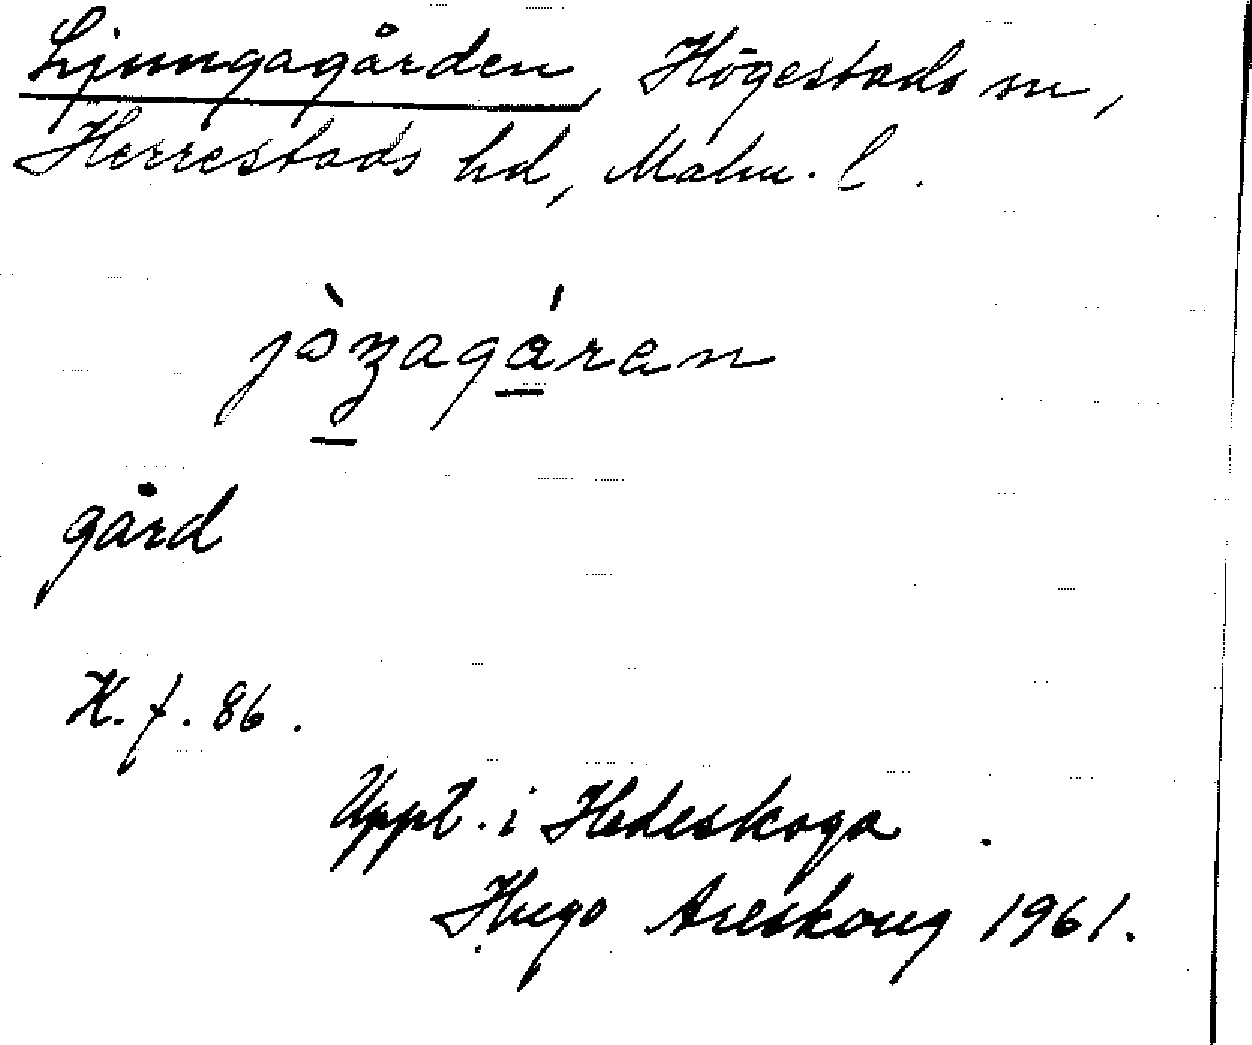 Ljungagården, Högestads sn,
Herrestads hd, Malm. l.
gård
K. f. 86.
Uppt. i Hedeskoga
Hugo Areskoug 1961.